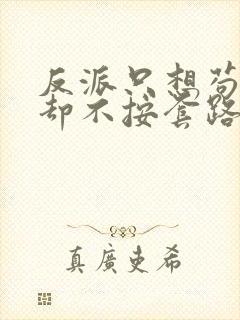 反派只想苟
却不按套路
真廣史希